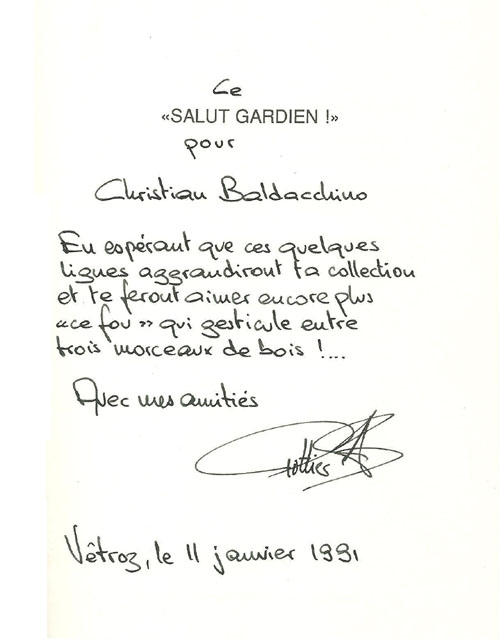 Ce
«SALUT GARDIEN !»
pour
Christian Baldacchino
En espérant que ces quelques
lignes aggrandiront ta collection
et te feront aimer encore plus
«ce fou» qui gesticule entre
trois morceaux de bois !...
Avec mes amitiés
Vêtroz, le 11 janvier 1991